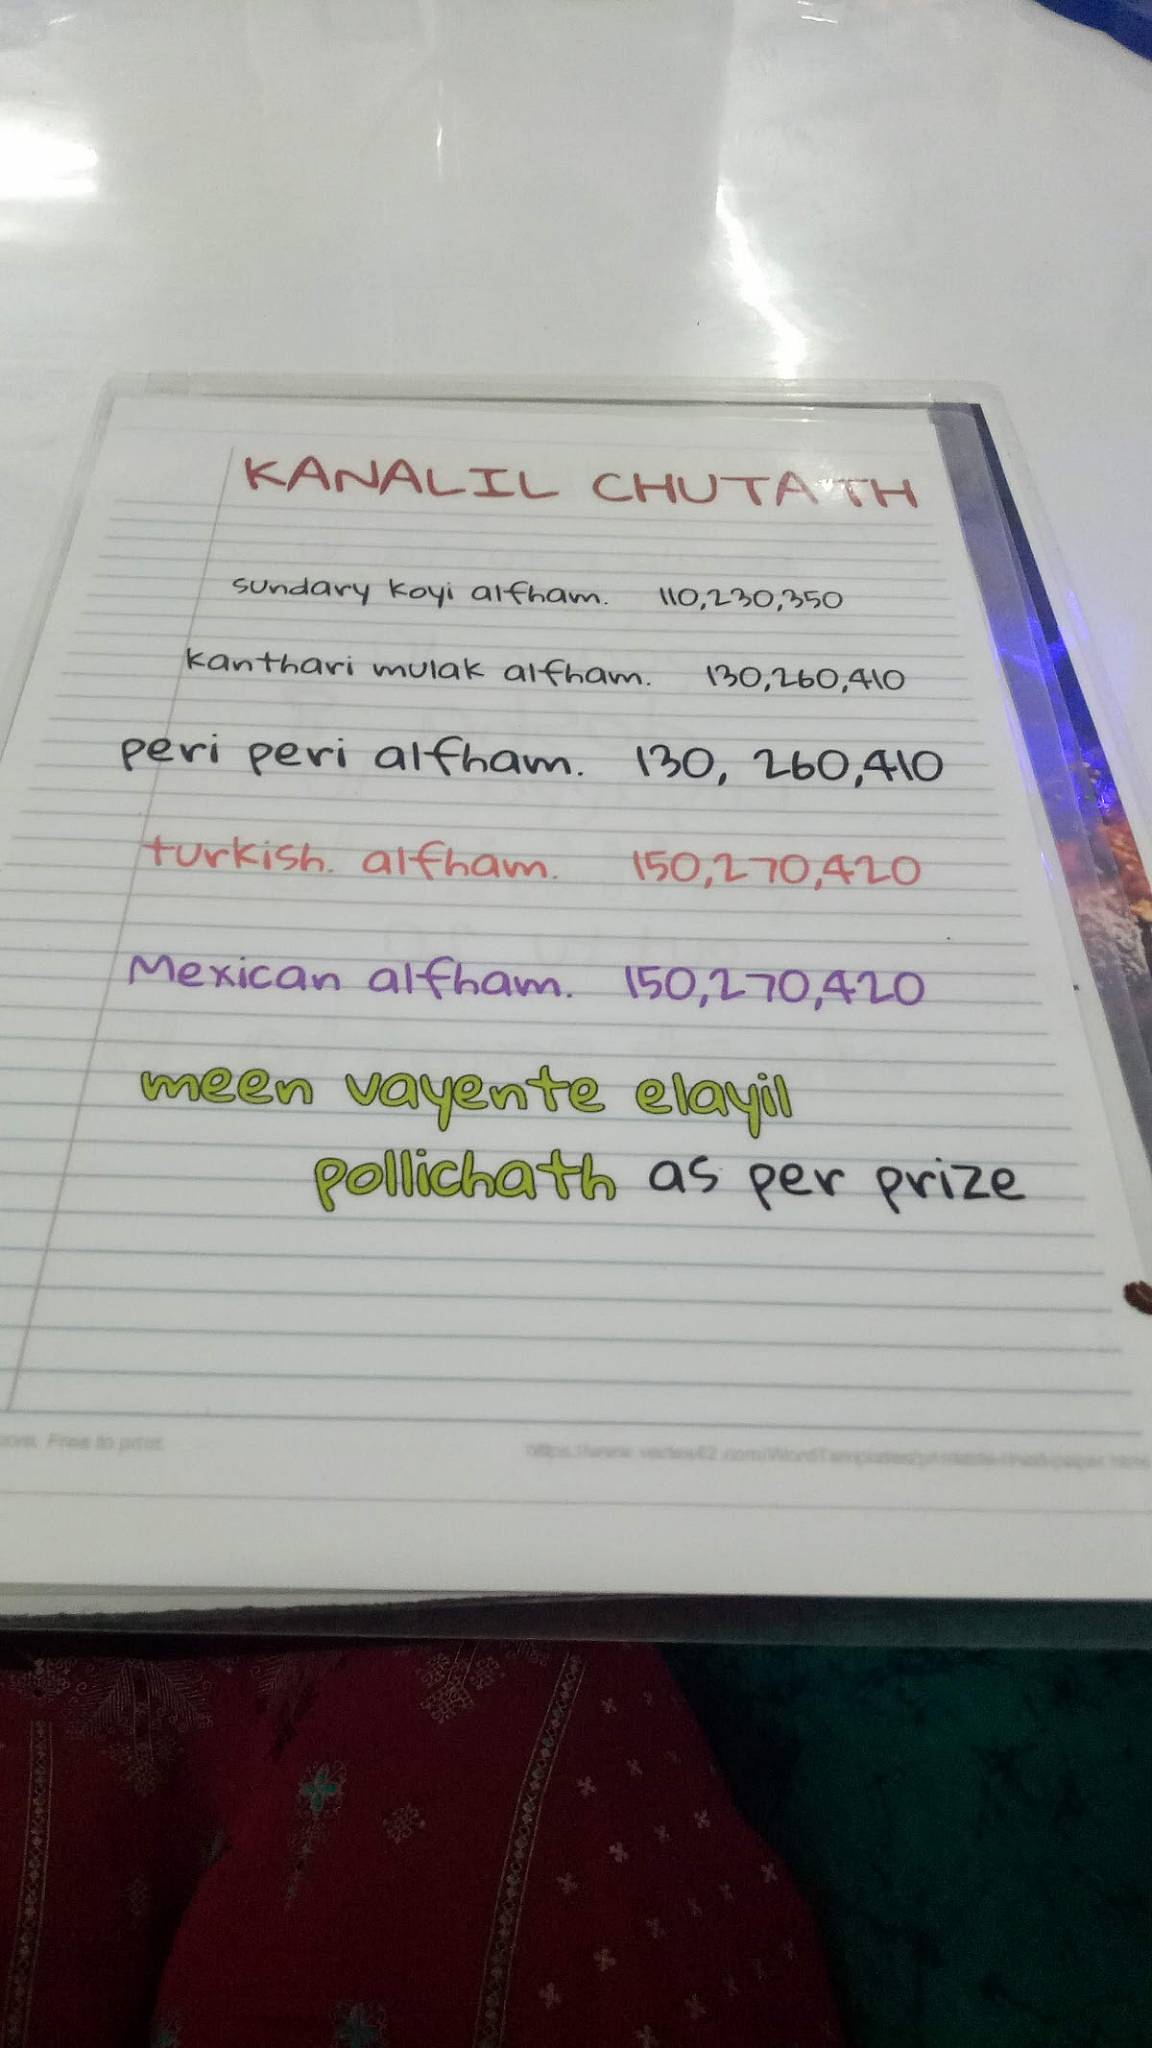 KANALIL CHUTATH
sundary koyi alfham. 110,230,350
kanthari mulak alfham. 130,260,410
peri peri alfham. 130, 260,410
turkish. alfham. 150,270,420
Mexican alfham. 150,270,420
meen vayente elayil
pollichath as per prize
Free to print.